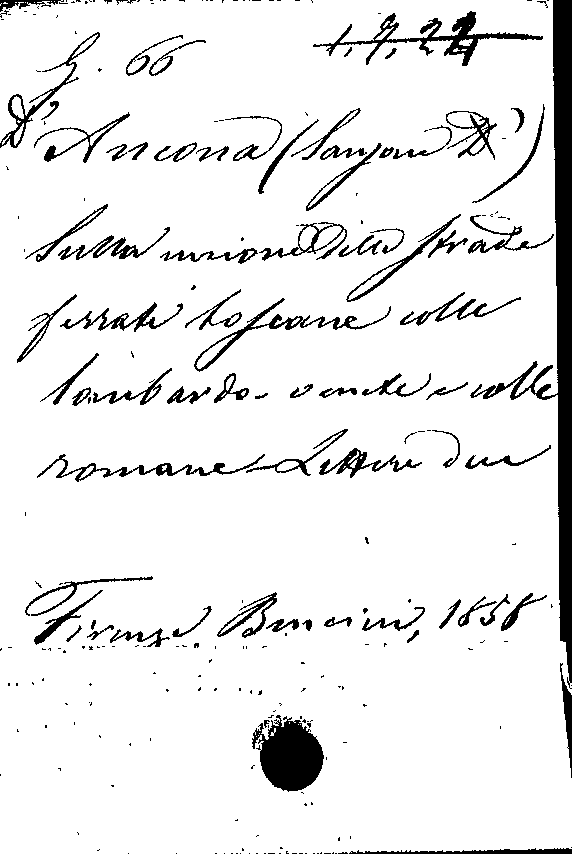 G. 66 1,7,22
D'Ancona (Sanson D')
Sulla unione delle strade
ferrate toscane colle
lombardo-venete e colle
romane - Lettere due
Firenze, Bencini, 1858